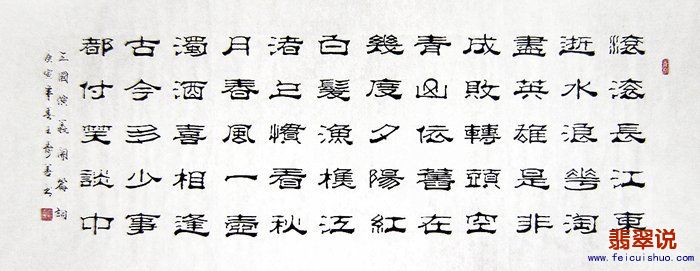 滾滾長江東
逝水浪花淘
盡英雄是非
成敗轉頭空
青山依舊在
幾度夕陽紅
白髮漁樵江
渚上慣看秋
月春風一壺
濁酒喜相逢
古今多少事
都付笑談中
三國演義開篇詞
庚寅年春王
翡翠说
www.feicuishuo.com